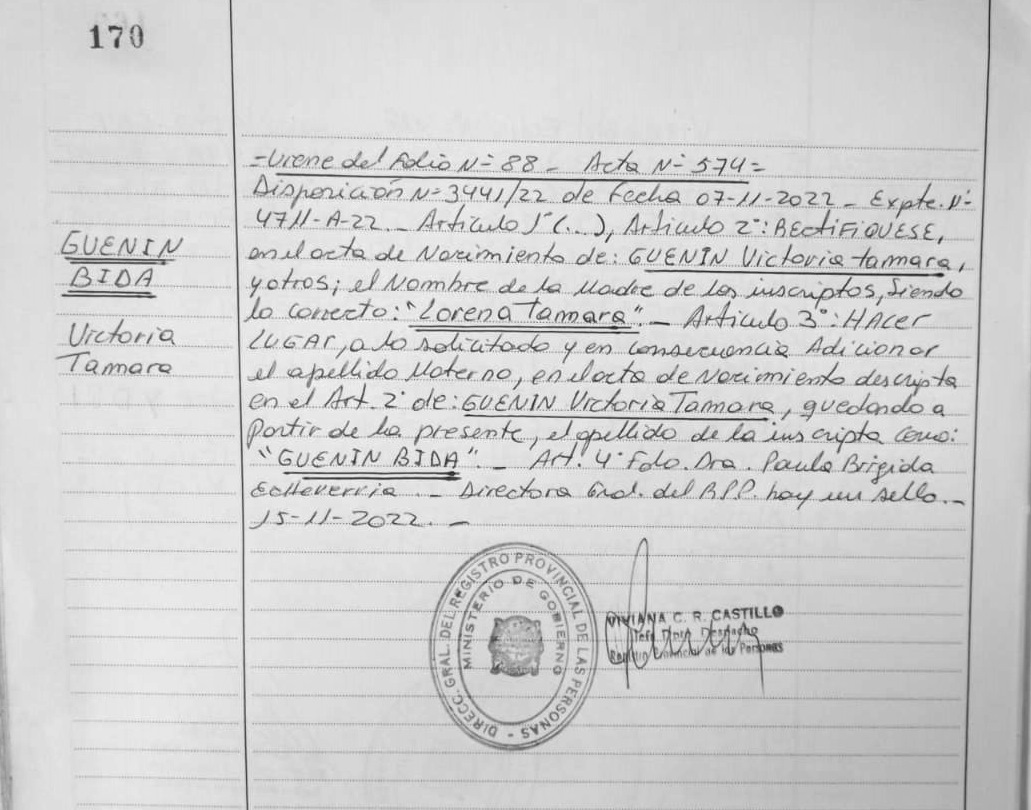 170
GUENIN
BIDA
Victoria
Tamara
=Viene del Folio N= 88 - Acta N= 574=
Disposición N= 3441/22 de Fecha 07-11-2022 - Expte. N=
4711-A-22 - Artículo 1° (...), Artículo 2°: RECTIFIQUESE,
en el acta de Nacimiento de: GUENIN Victoria Tamara,
y otros; el Nombre de la Madre de los inscriptos, siendo
lo correcto: "Lorena Tamara" - Artículo 3°: HACER
LUGAR, a lo solicitado y en consecuencia Adicionar
el apellido Materno, en el acta de Nacimiento descripta
en el Art. 2° de: GUENIN Victoria Tamara, quedando a
partir de la presente, el apellido de la inscripta como:
"GUENIN BIDA" - Art. 4° Fdo. Dra. Paula Brigida
Echeverria - Directora Gral. del R.P.P. hay un sello.-
15-11-2022. -
DIRECC. GRAL. DEL REGISTRO PROVINCIAL DE LAS PERSONAS -
MINISTERIO DE GOBIERNO
VIVIANA C. R. CASTILLO
Despacho
Registro Provincial de las Personas